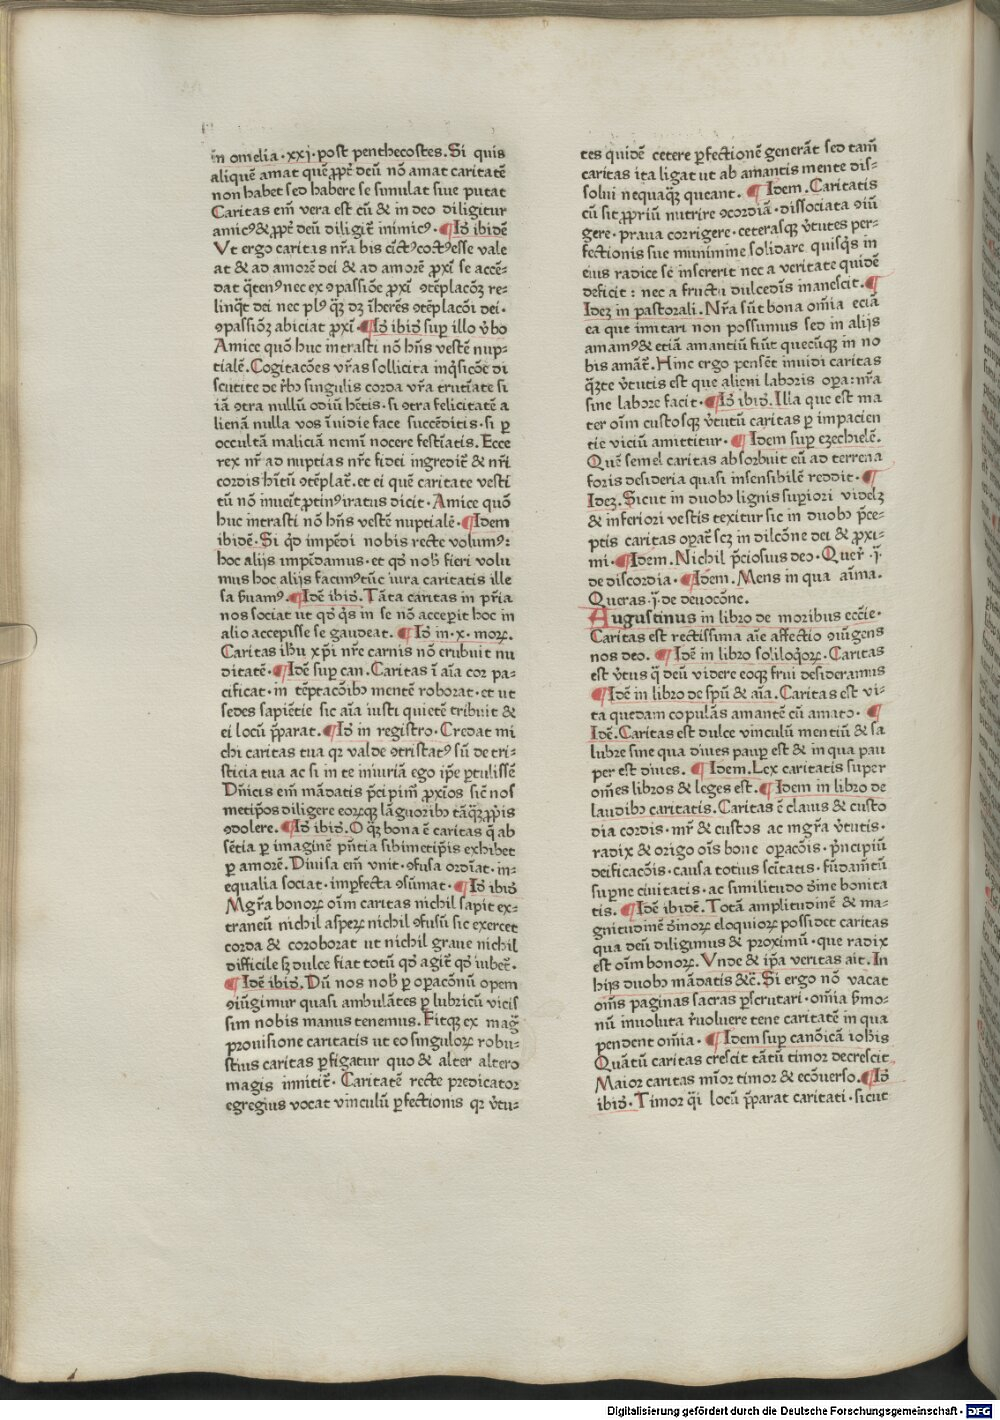 in omelia·xxj·post penthecostes.Si quis
aliquē amat quē ꝓpt̄ deū nō amat caritatē
non habet sed habere se simulat siue putat
Caritas em̄ vera est cū & in deo diligitur
amicꝰ&ꝓpt̄ deū diligit̄ inimicꝰ·¶Idē ibidē
Vt ergo caritas nr̄a his cīctꝰcoctꝰesse vale
at & ad amorē dei & ad amorē ꝓxi se accē-
dat q̄tenꝰnec ex ꝯpassiōe ꝓxi ꝯtēplacōꝫ re-
linq̄t dei nec plꝰ q̄ꝫ dꝫ īherēs ꝯtēplacōi dei·
ꝯpassiōꝫ abiciat ꝓxi·¶Id̄ ibid̄ suꝑ illo v̄bo
Amice quō huc intrasti nō hn̄s vestē nup-
tialē.Cogitacōes vr̄as sollicita inq̄siciōe di
scutite de r̄bꝫ singulis corda vr̄a trutīate si
iā ꝯtra nullū odiū hētis·si ꝯtra felicitatē a
lienā nulla vos īuidie face succēditis·si ꝑ
occultā maliciā nemī nocere festīatis.Ecce
rex nr̄ ad nuptias nr̄e fidei ingredit̄ & nr̄i
cordis hītū ꝯtēplat̄.et ei quē caritate vesti
tū nō inueit̄ ꝓtinꝰiratus dicit·Amice quō
huc intrasti nō hn̄s vestē nuptialē·¶Idem
ibidē·Si qd̄ impēdi nobis recte volumꝰ:
hoc alijs impēdamus·et qd̄ nob̄ fieri volu
mus hoc alijs facimꝰtūc iura caritatis ille
sa ẜuamꝰ.¶Idē ibid̄.Tāta caritas in pr̄ia
nos sociat ut qd̄ q̄s in se nō acceꝑit hoc in
alio accepisse se gaudeat.¶Id̄ in·x·moꝝ.
Caritas ihū xp̄i nr̄e carnis nō erubuit nu
ditatē·¶Idē suꝑ can.Caritas ī aīa cor pa-
cificat·in tēptacōibꝫ mentē roborat·et ut
sedes sapiētie sic aīa iusti quietē tribuit &
ei locū p̄parat.¶Id̄ in registro·Credat mi
chi caritas tua qꝛ valde ꝯtristatꝰ sū de tri-
sticia tua ac si in te iniuriā ego ip̄e ꝑtulissē
Dn̄icis em̄ mādatis p̄cipim̄ ꝓxios sic nos
metip̄os diligere eoꝝqꝫ lāguoribꝫ tāq̄ꝫꝓpis
ꝯdolere.¶Id̄ ibid̄.O q̄ꝫ bona ē caritas q̄ ab
sētia ꝑ imaginē pn̄tia sibimetip̄is exhibet
ꝑ amorē.Diuisa em̄ vnit·ꝯfusa ordīat·in-
equalia sociat·imꝑfecta ꝯsūmat·¶Id̄ ibid̄
Mgr̄a bonoꝝ oīm caritas nichil sapit ex-
traneū nichil aspeꝝ nichil ꝯfusū sic exercet
corda & coroborat ut nichil graue nichil
difficile sꝫ dulce fiat totū qd̄ agit̄ qd̄ iubet̄.
¶Idē ibid̄.Dū nos nob̄ ꝑ opacōnū opem
ꝯiūgimur quasi ambulātes ꝑ lubricū vicis
sim nobis manus tenemus.Fitqꝫ ex maḡ
prouisione caritatis ut eo singuloꝝ robu-
stius caritas ꝑfigatur quo & alter altero
magis innitit̄·Caritatē recte predicator
egregius vocat vinculū ꝑfectionis qꝛ v̄tu-
tes quidē cetere ꝑfectionē generāt sed tam̄
caritas ita ligat ut ab amantis mente dis-
solui nequaqꝫ queant.¶Idem.Caritatis
cū sit ꝓpriū nutrire ꝯcordiā·dissociata ꝯiū
gere·praua corrigere·ceterasqꝫ v̄tutes per-
fectionis sue munimine solidare quisq̄s in
eius radice se inserit nec a veritate quidē
deficit: nec a fructu dulcedīs inanescit.¶
Ideꝫ in pastorali.Nr̄a sūt bona om̄ia eciā
ea que imitari non possumus sed in alijs
amamꝰ& etiā amantiū fiūt quecūqꝫ in no
bis amāt̄.Hinc ergo pensēt inuidi caritas
q̄ꝫte v̄tutis est que alieni laboris oꝑa:nr̄a
sine labore facit·¶Id̄ ibid̄.Illa que est ma
ter oīm custosqꝫ v̄tutū caritas ꝑ impacien
tie viciū amittitur·¶Idem suꝑ ezechielē.
Quē semel caritas absorbuit eū ad terrena
foris desideria quasi insensibilē reddit·¶
Ideꝫ.Sicut in duobꝫ lignis supiori videlꝫ
& inferiori vestis texitur sic in duobꝫ p̄ce-
ptis caritas oꝑat̄ scꝫ in dilcōne dei & ꝓxi-
mi·¶Idem.Nichil p̄ciosius deo·Quer̄·j̄·
de discordia·¶Idem.Mens in qua aīma.
Queras·j̄·de deuocōne.
Augustinus in libro de moribus eccīe·
Caritas est rectissima aīe affectio ꝯiūgens
nos deo.¶Idē in libro soliloqoꝝ.Caritas
est v̄tus q̄ deū videre eoqꝫ frui desideramus
¶Idē in libro de spū & aīa.Caritas est vi-
ta quedam copulās amantē cū amato·¶
Idē.Caritas est dulce vinculū mentiū & sa
lubre sine qua diues pauꝑ est & in qua pau
per est diues.¶Idem.Lex caritatis super
om̄es libros & leges est.¶Idem in libro de
laudibꝫ caritatis.Caritas ē clauis & custo
dia cordis·mr̄ & custos ac mgr̄a v̄tutis·
radix & origo oīs bone opacōis·p̄ncipiū
deificacōis·causa totius scītatis·fūdam̄tū
suꝑne ciuitatis·ac similitudo d̄ine bonita
tis.¶Idē ibidē.Totā amplitudinē & ma-
gnitudinē d̄inoꝝ eloquioꝝ possidet caritas
qua deū diligimus & proximū·que radix
est oīm bonoꝝ.Vnde & ip̄a veritas ait.In
hijs duobꝫ mādatis &c̄.Si ergo nō vacat
om̄s paginas sacras ꝑscrutari·om̄ia ẜmo-
nū inuoluta r̄uoluere tene caritatē in qua
pendent om̄ia·¶Idem suꝑ canōicā iohīs
Quātū caritas crescit tātū timor decrescit
Maior caritas mīor timor & ecōuerso.¶Id̄
ibid̄.Timor q̄si locū p̄parat caritati·sicut
Digitalisierung gefördert durch die Deutsche Forschungsgemeinschaft - DFG